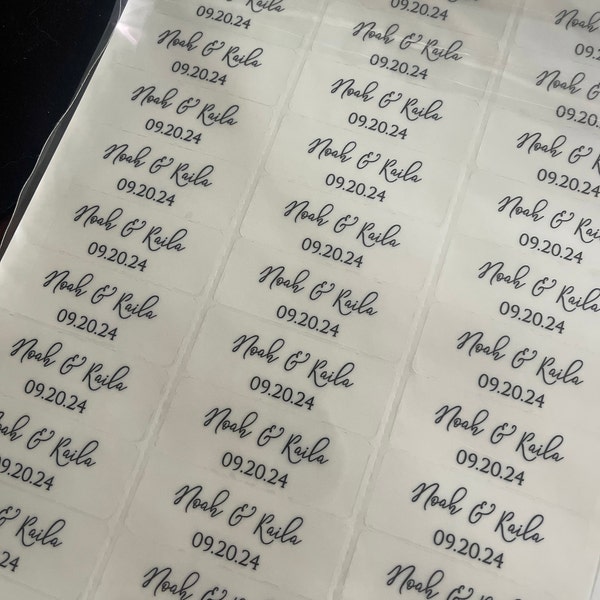 09.20.24
Noah & Raila
09.20.24
Noah & Raila
09.20.24
Noah & Raila
09.20.24
Noah & Raila
09.20.24
Noah & Raila
09.20.24
Noah & Raila
09.20.24
oah & Raila
9.20.24
& Raila
.24
09.20.24
Noah & Raila
09.20.24
Noah & Raila
09.20.24
Noah & Raila
09.20.24
Noah & Raila
09.20.24
Noah & Raila
09.20.24
Noah & Raila
09.20.24
Noah & Raila
09.20.24
Noah & Raila
09.20.24
Noah & Raila
Noah &
09.20
Noah &
09.20.2
Noah &
09.20.24
Noah & Rai
09.20.24
Noah & Raila
09.20.24
Noah & Raila
09.20.24
Noah & Raila
09.20.24
Noah & Raila
09.20.24
Noah & Raila